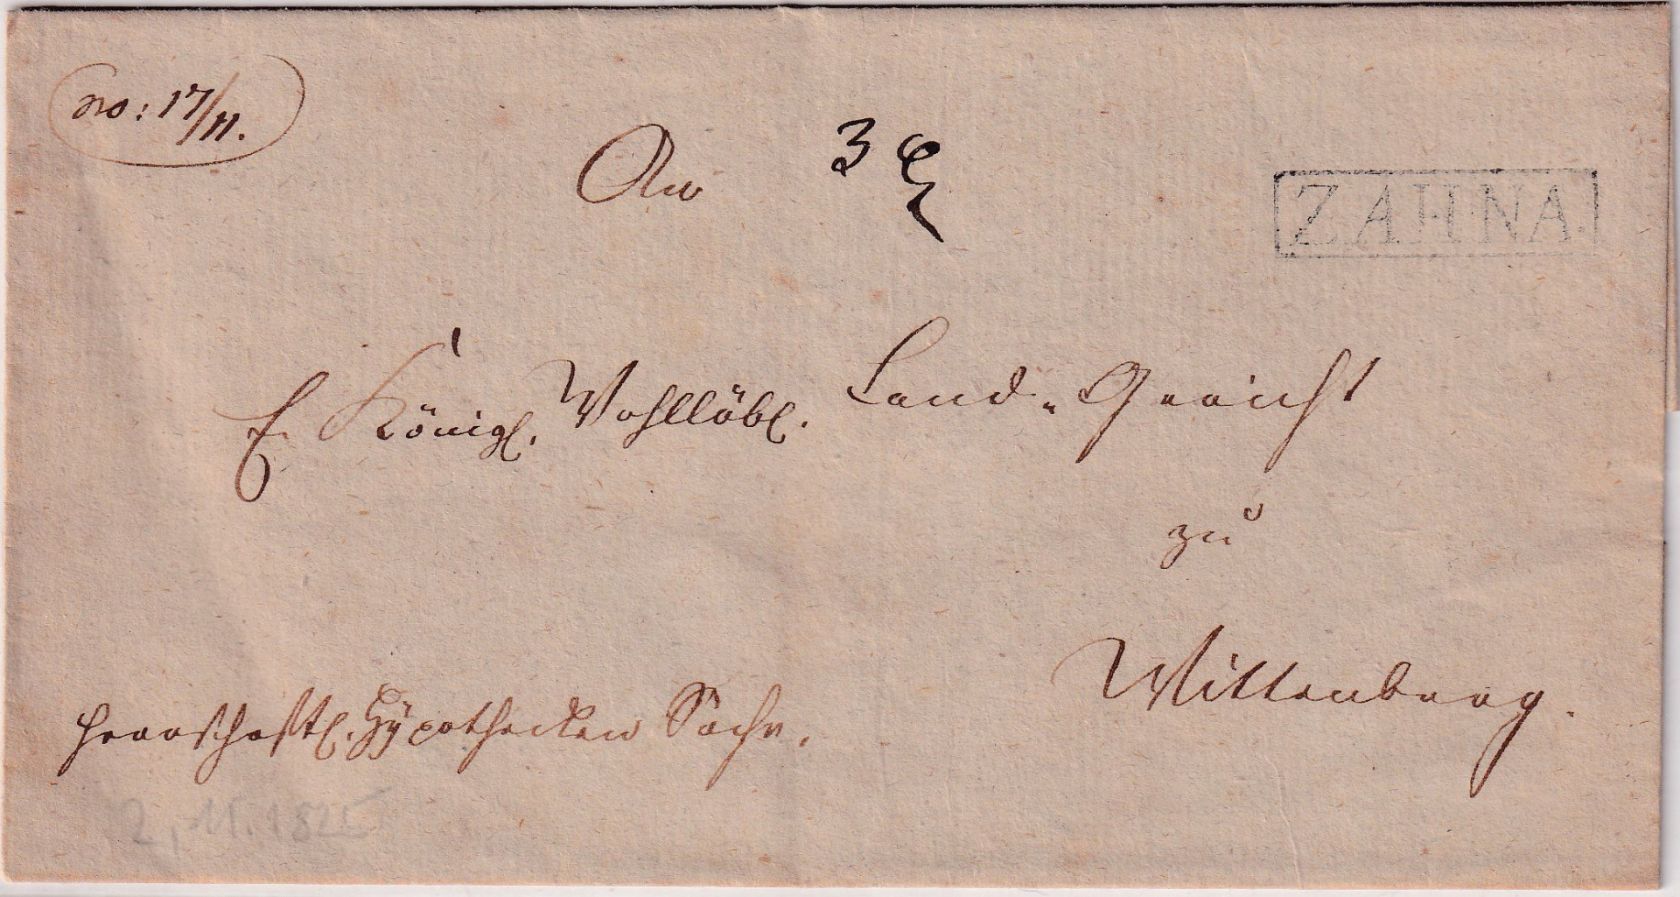 no: 17/11.
An
3
ZAHNA.
E Königl. Wohllöbl. Land-Gericht
zu
Wittenberg.
Herrschaftl. Hypothecken Sache.